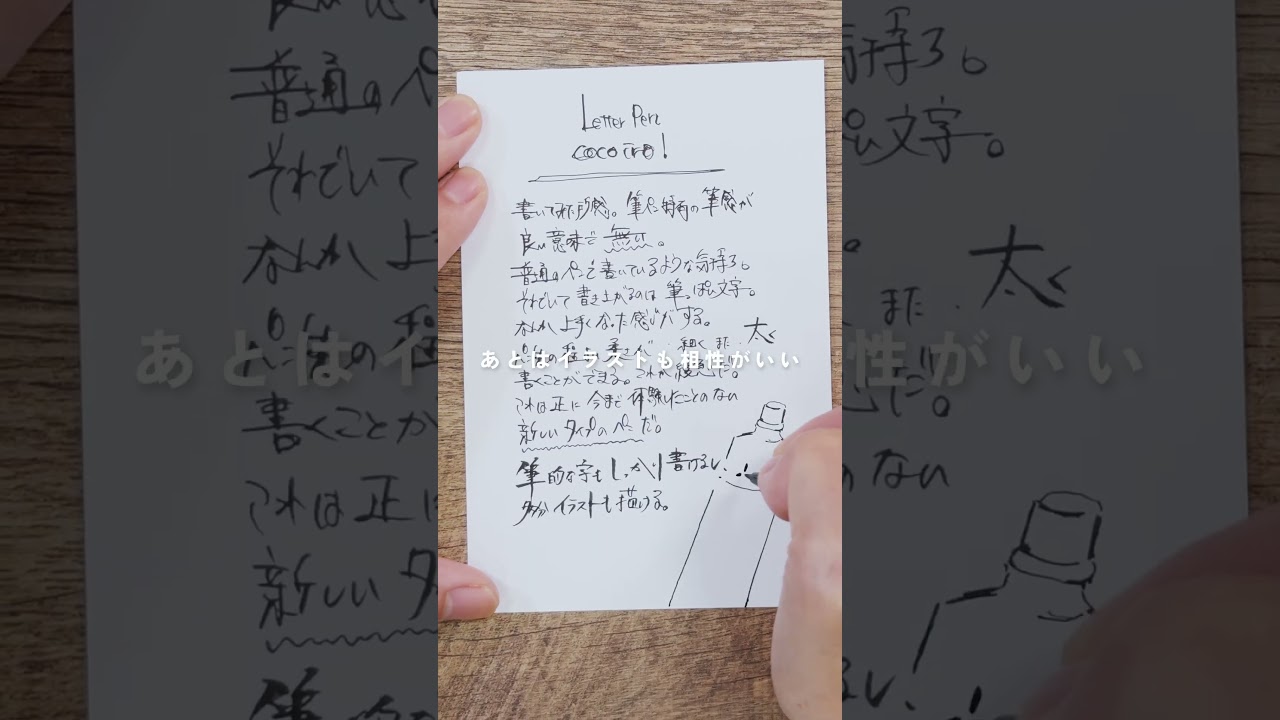 Letter Pen
cocoiro!
書いてみた感想。筆ペン特有の筆感が
良い意味で無い。
普通のペンで書いているような気持ち。
それでいて書き上がるのは筆っぽい文字。
なんか上手くなった感じがする。
太く
細く また
あとはイラストも相性がいい
書くことができる。これが
これは正に今まで体験したことのない
新しいタイプのペンだ。
筆的な字もしっかり書けるし、
多分イラストも描ける。